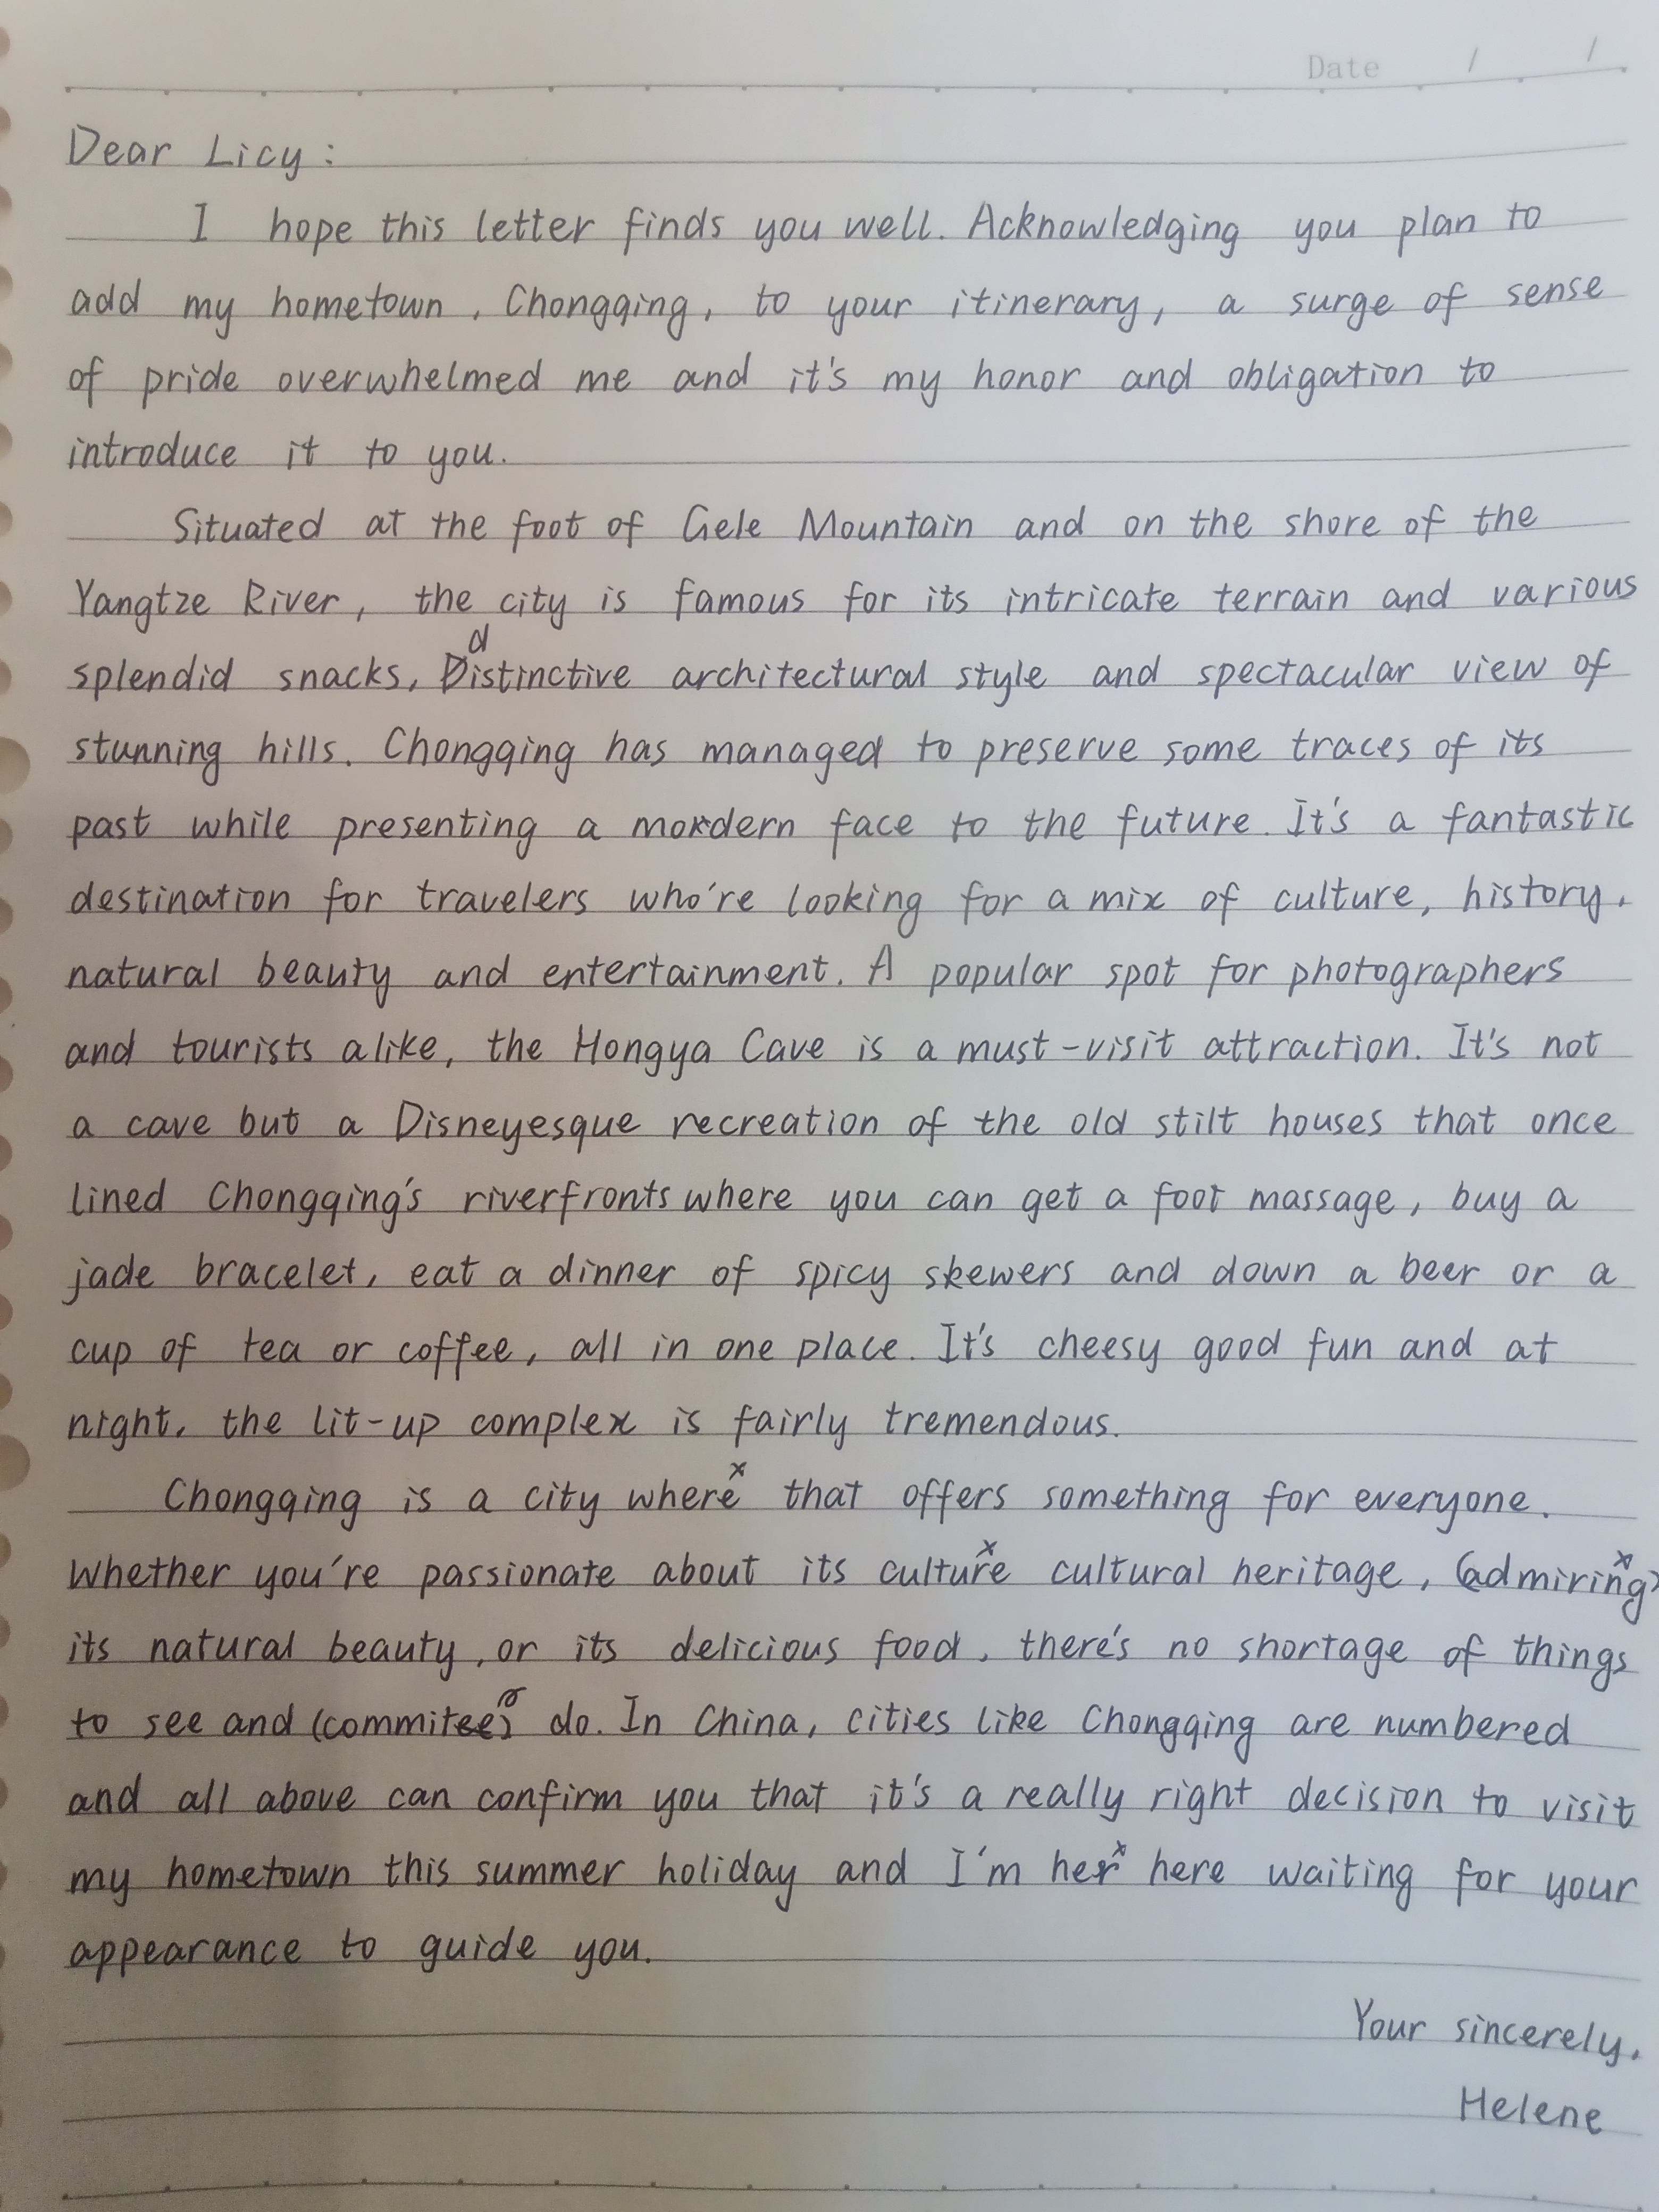 Date / /
Dear Licy:
I hope this letter finds you well. Acknowledging you plan to
add my hometown, Chongqing, to your itinerary, a surge of sense
of pride overwhelmed me and it's my honor and obligation to
introduce it to you.
Situated at the foot of Gele Mountain and on the shore of the
Yangtze River, the city is famous for its intricate terrain and various
splendid snacks, distinctive architectural style and spectacular view of
stunning hills. Chongqing has managed to preserve some traces of its
past while presenting a mordern face to the future. It's a fantastic
destination for travelers who're looking for a mix of culture, history,
natural beauty and entertainment. A popular spot for photographers
and tourists alike, the Hongya Cave is a must-visit attraction. It's not
a cave but a Disneyesque recreation of the old stilt houses that once
lined Chongqing's riverfronts where you can get a foot massage, buy a
jade bracelet, eat a dinner of spicy skewers and down a beer or a
cup of tea or coffee, all in one place. It's cheesy good fun and at
night, the lit-up complex is fairly tremendous.
Chongqing is a city where that offers something for everyone.
Whether you're passionate about its culture cultural heritage, (admiring)
its natural beauty, or its delicious food, there's no shortage of things
to see and (commitee) do. In China, cities like Chongqing are numbered
and all above can confirm you that it's a really right decision to visit
my hometown this summer holiday and I'm her here waiting for your
appearance to guide you.
Your sincerely,
Helene